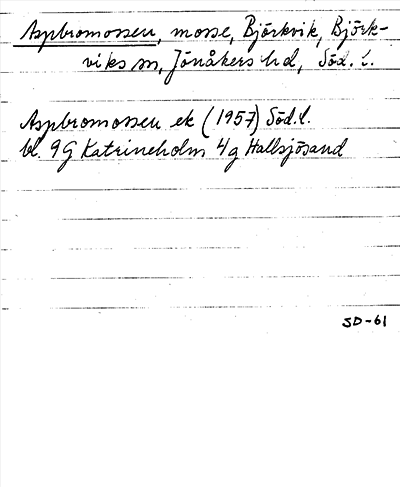 Aspbromossen, mosse, Björkvik, Björk-
viks sn, Jönåkers hd, Söd. l.
Aspbromossen ek (1957) Söd. l.
bl. 9G Katrineholm 4g Hallsjösand
SD-61